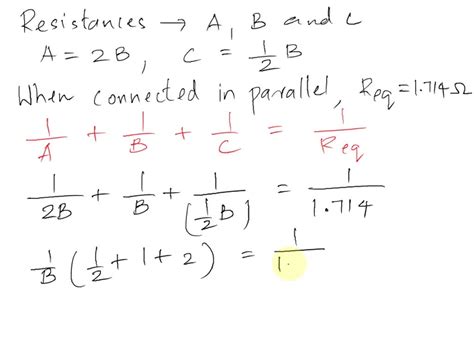 Resistances → A, B and C
A = 2B, C = 1/2 B
When connected in parallel, Req = 1.714Ω
1/A + 1/B + 1/C = 1/Req
1/2B + 1/B + 1/(1/2 B) = 1/1.714
1/B (1/2 + 1 + 2) = 1/1.